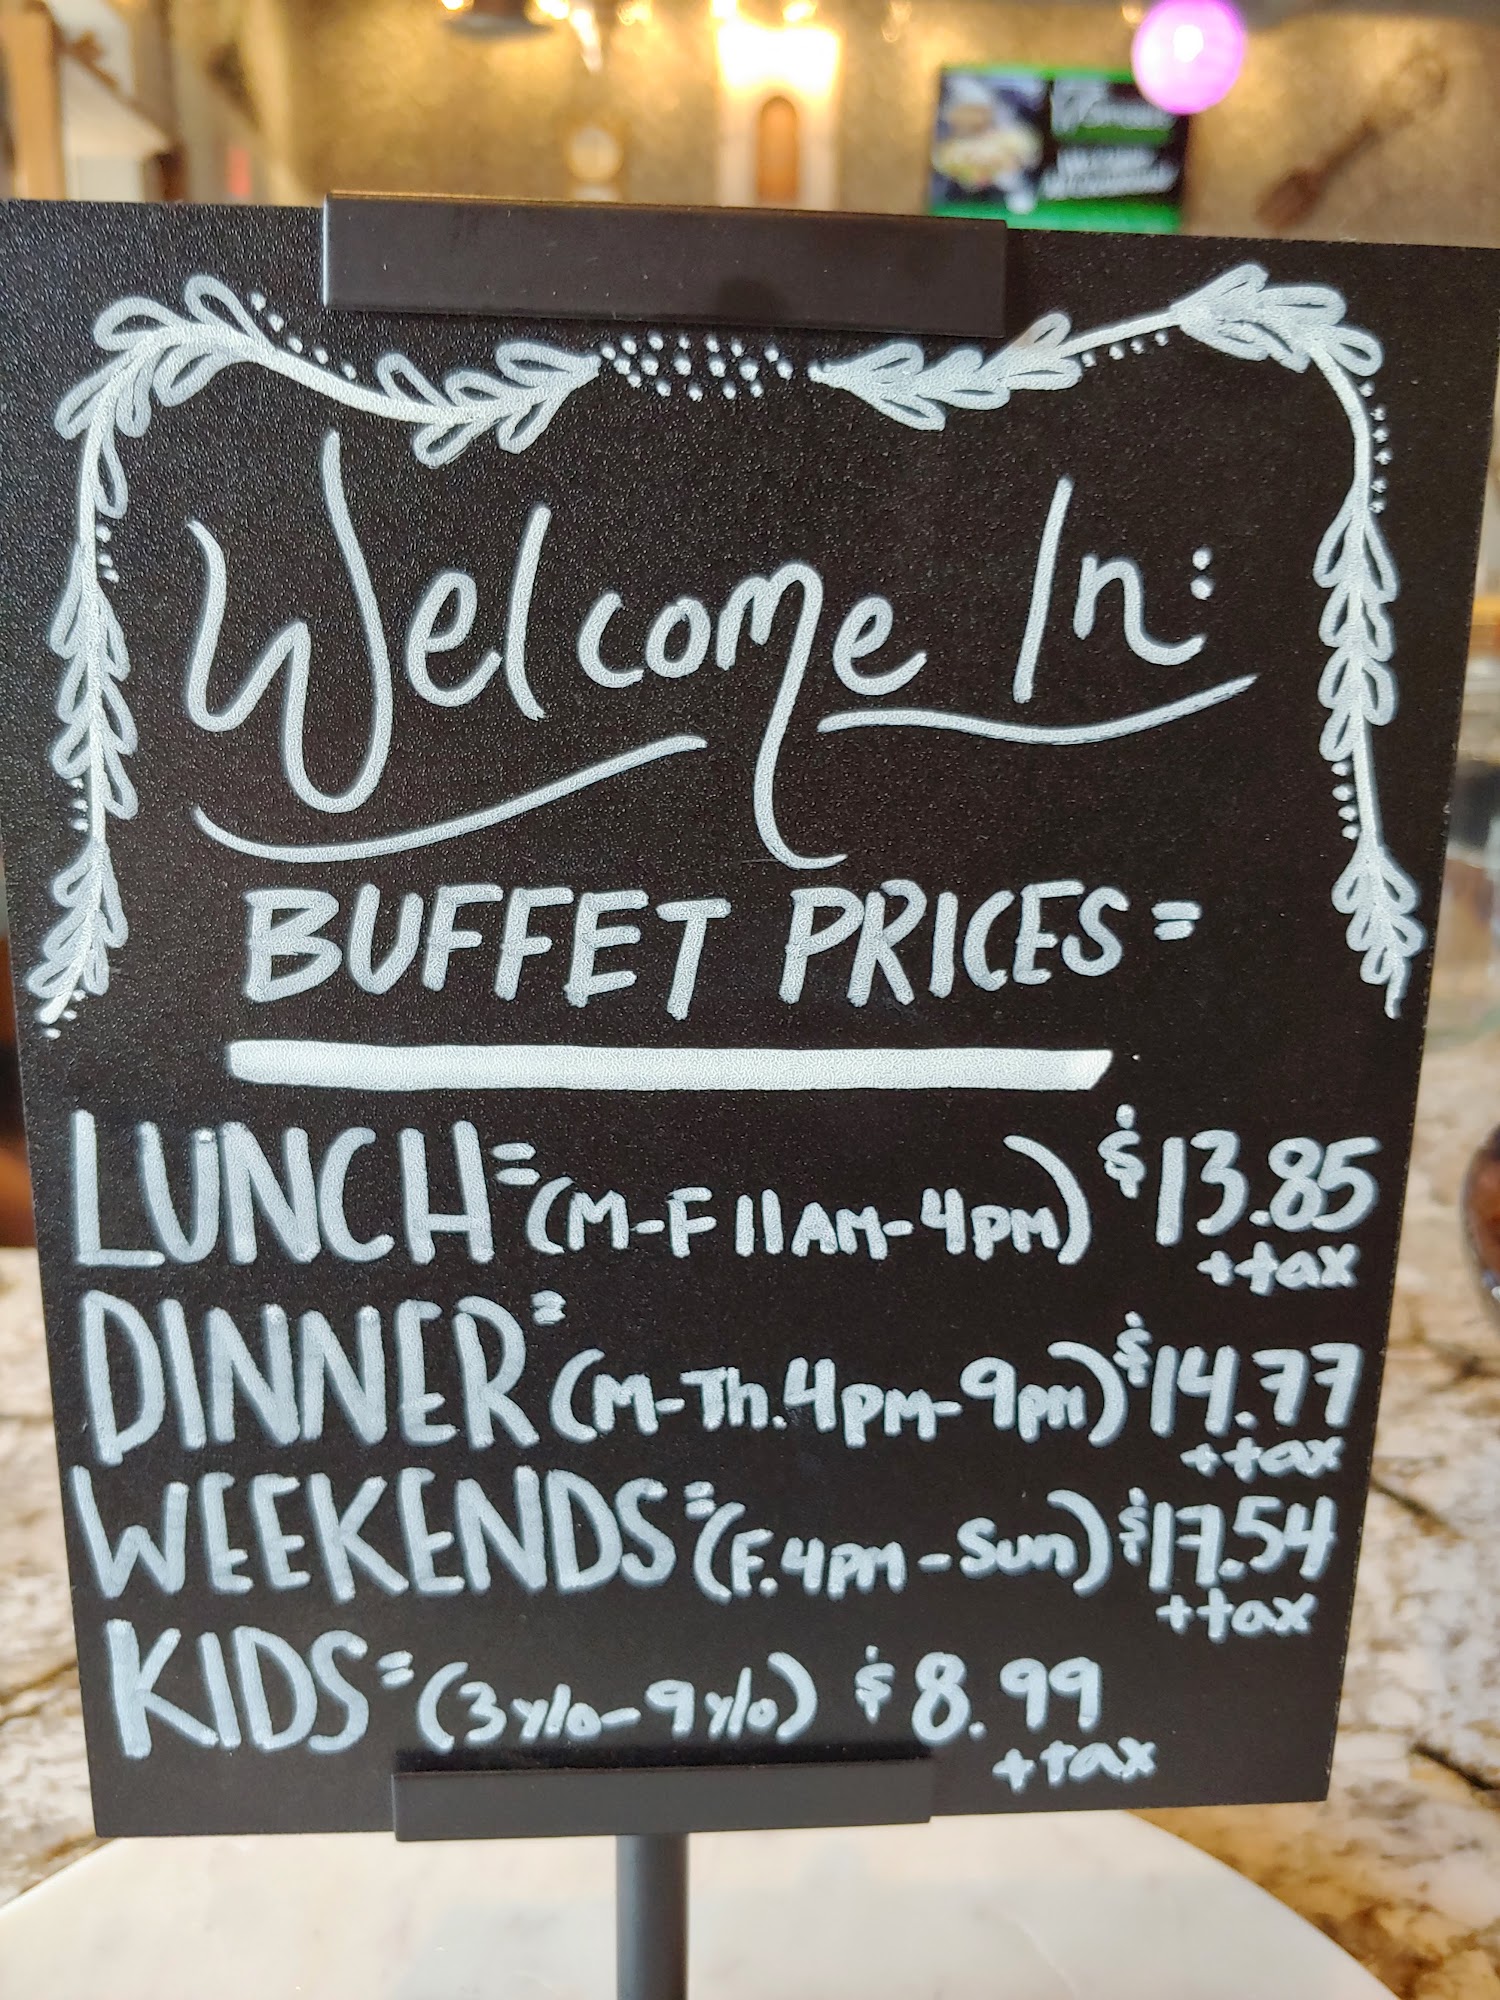 Welcome In:
BUFFET PRICES=
LUNCH= (M-F 11AM-4PM) $13.85
+tax
DINNER= (M-Th.4PM-9PM) $14.77
+tax
WEEKENDS= (F.4PM-Sun) $17.54
+tax
KIDS= (3y/o-9y/o) $8.99
+tax